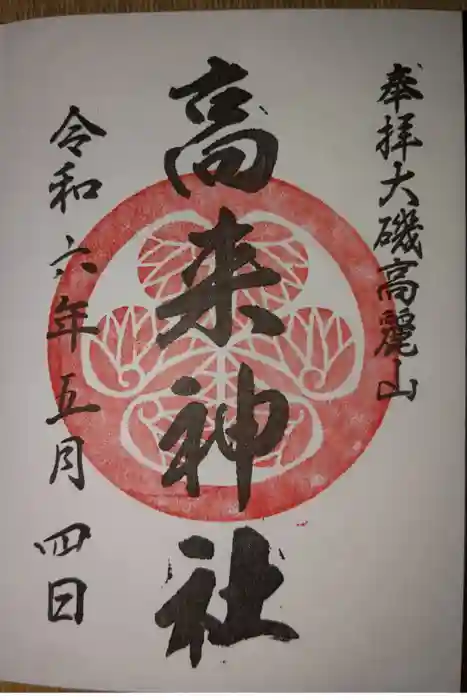 奉拝大磯高麗山
高来神社
令和六年五月四日